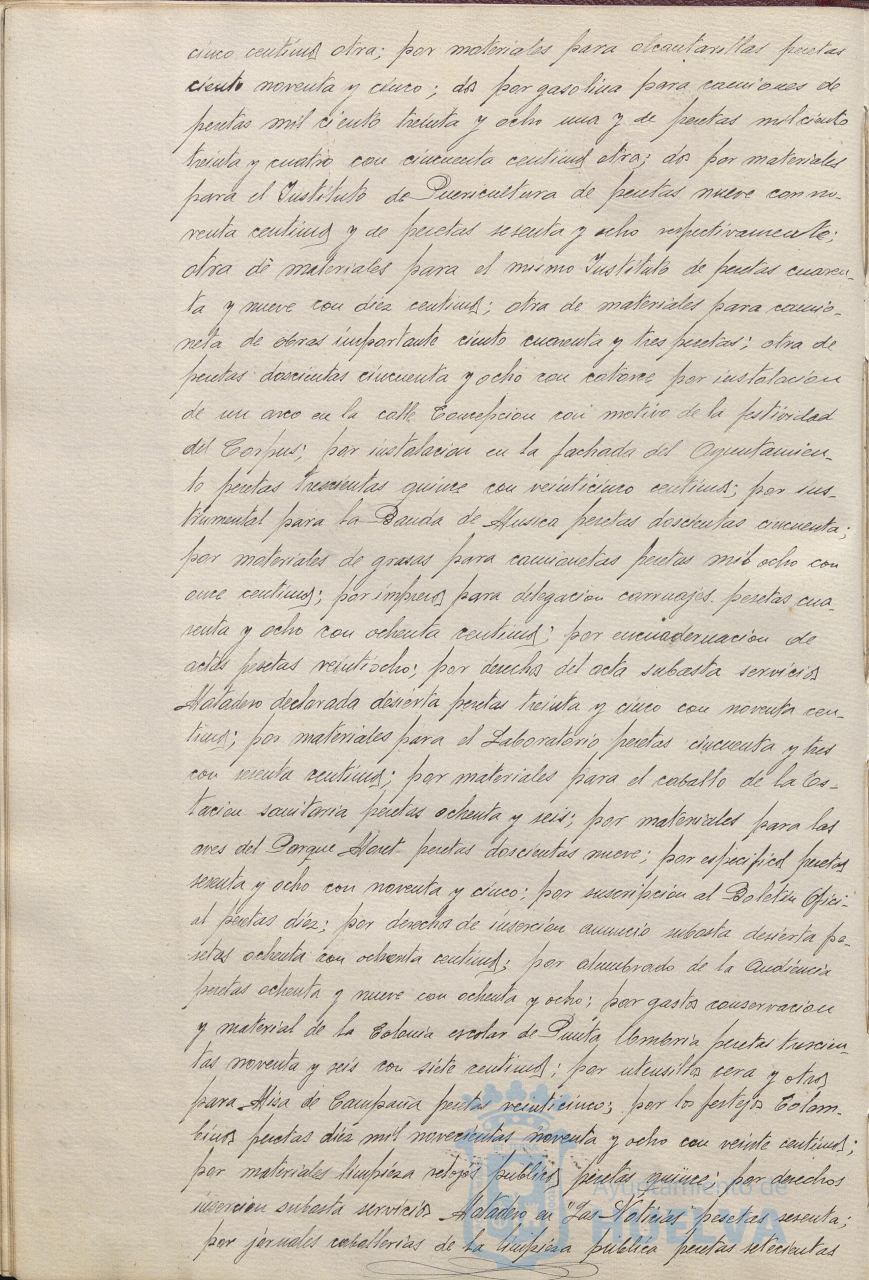 cinco centims otra; por materiales para alcantarillas pesetas
ciento noventa y cinco; dos por gasolina para camiones de
pesetas mil ciento treinta y ocho una y de pesetas mil ciento
treinta y cuatro con cincuenta centims otra; dos por materiales
para el Instituto de Puericultura de pesetas nueve con no-
venta centims y de pesetas sesenta y ocho respectivamente;
otra de materiales para el mismo Instituto de pesetas cuaren-
ta y nueve con diez centims; otra de materiales para camio-
neta de obras importante ciento cuarenta y tres pesetas; otra de
pesetas doscientas cincuenta y ocho con catorce por instalacion
de un arco en la calle Concepcion con motivo de la festividad
del Corpus; por instalacion en la fachada del Ayuntamien-
to pesetas trescientas quince con veinticinco centims; por ins-
trumental para la Banda de Musica pesetas doscientas cincuenta;
por materiales de grasas para camionetas pesetas mil ocho con
once centims; por impresos para delegacion carruajes pesetas cua-
renta y ocho con ochenta centims; por encuadernacion de
actas pesetas veintiocho; por derechos del acta subasta servicios
Matadero declarada desierta pesetas treinta y cinco con noventa cen-
tims; por materiales para el Laboratorio pesetas cincuenta y tres
con sesenta centims; por materiales para el caballo de la Es-
tacion sanitaria pesetas ochenta y seis; por materiales para las
aves del Parque Moret pesetas doscientas nueve; por especificos pesetas
sesenta y ocho con noventa y cinco; por suscripcion al Boletin Ofici-
al pesetas diez; por derechos de insercion anuncio subasta desierta pe-
setas ochenta con ochenta centims; por alumbrado de la Audiencia
pesetas ochenta y nueve con ochenta y ocho; por gastos conservacion
y material de la Colonia escolar de Punta Umbria pesetas trescien-
tas noventa y seis con siete centims; por utensilios cera y otros
para Misa de Campaña pesetas veinticinco; por los festejos Colom-
binos pesetas diez mil novecientas noventa y ocho con veinte centims;
por materiales limpieza relojes publicos pesetas quince; por derechos
insercion subasta servicios Matadero en "Las Noticias" pesetas sesenta;
por jornales caballerias de la limpieza publica pesetas setecientas
Ayuntamiento de
HUELVA